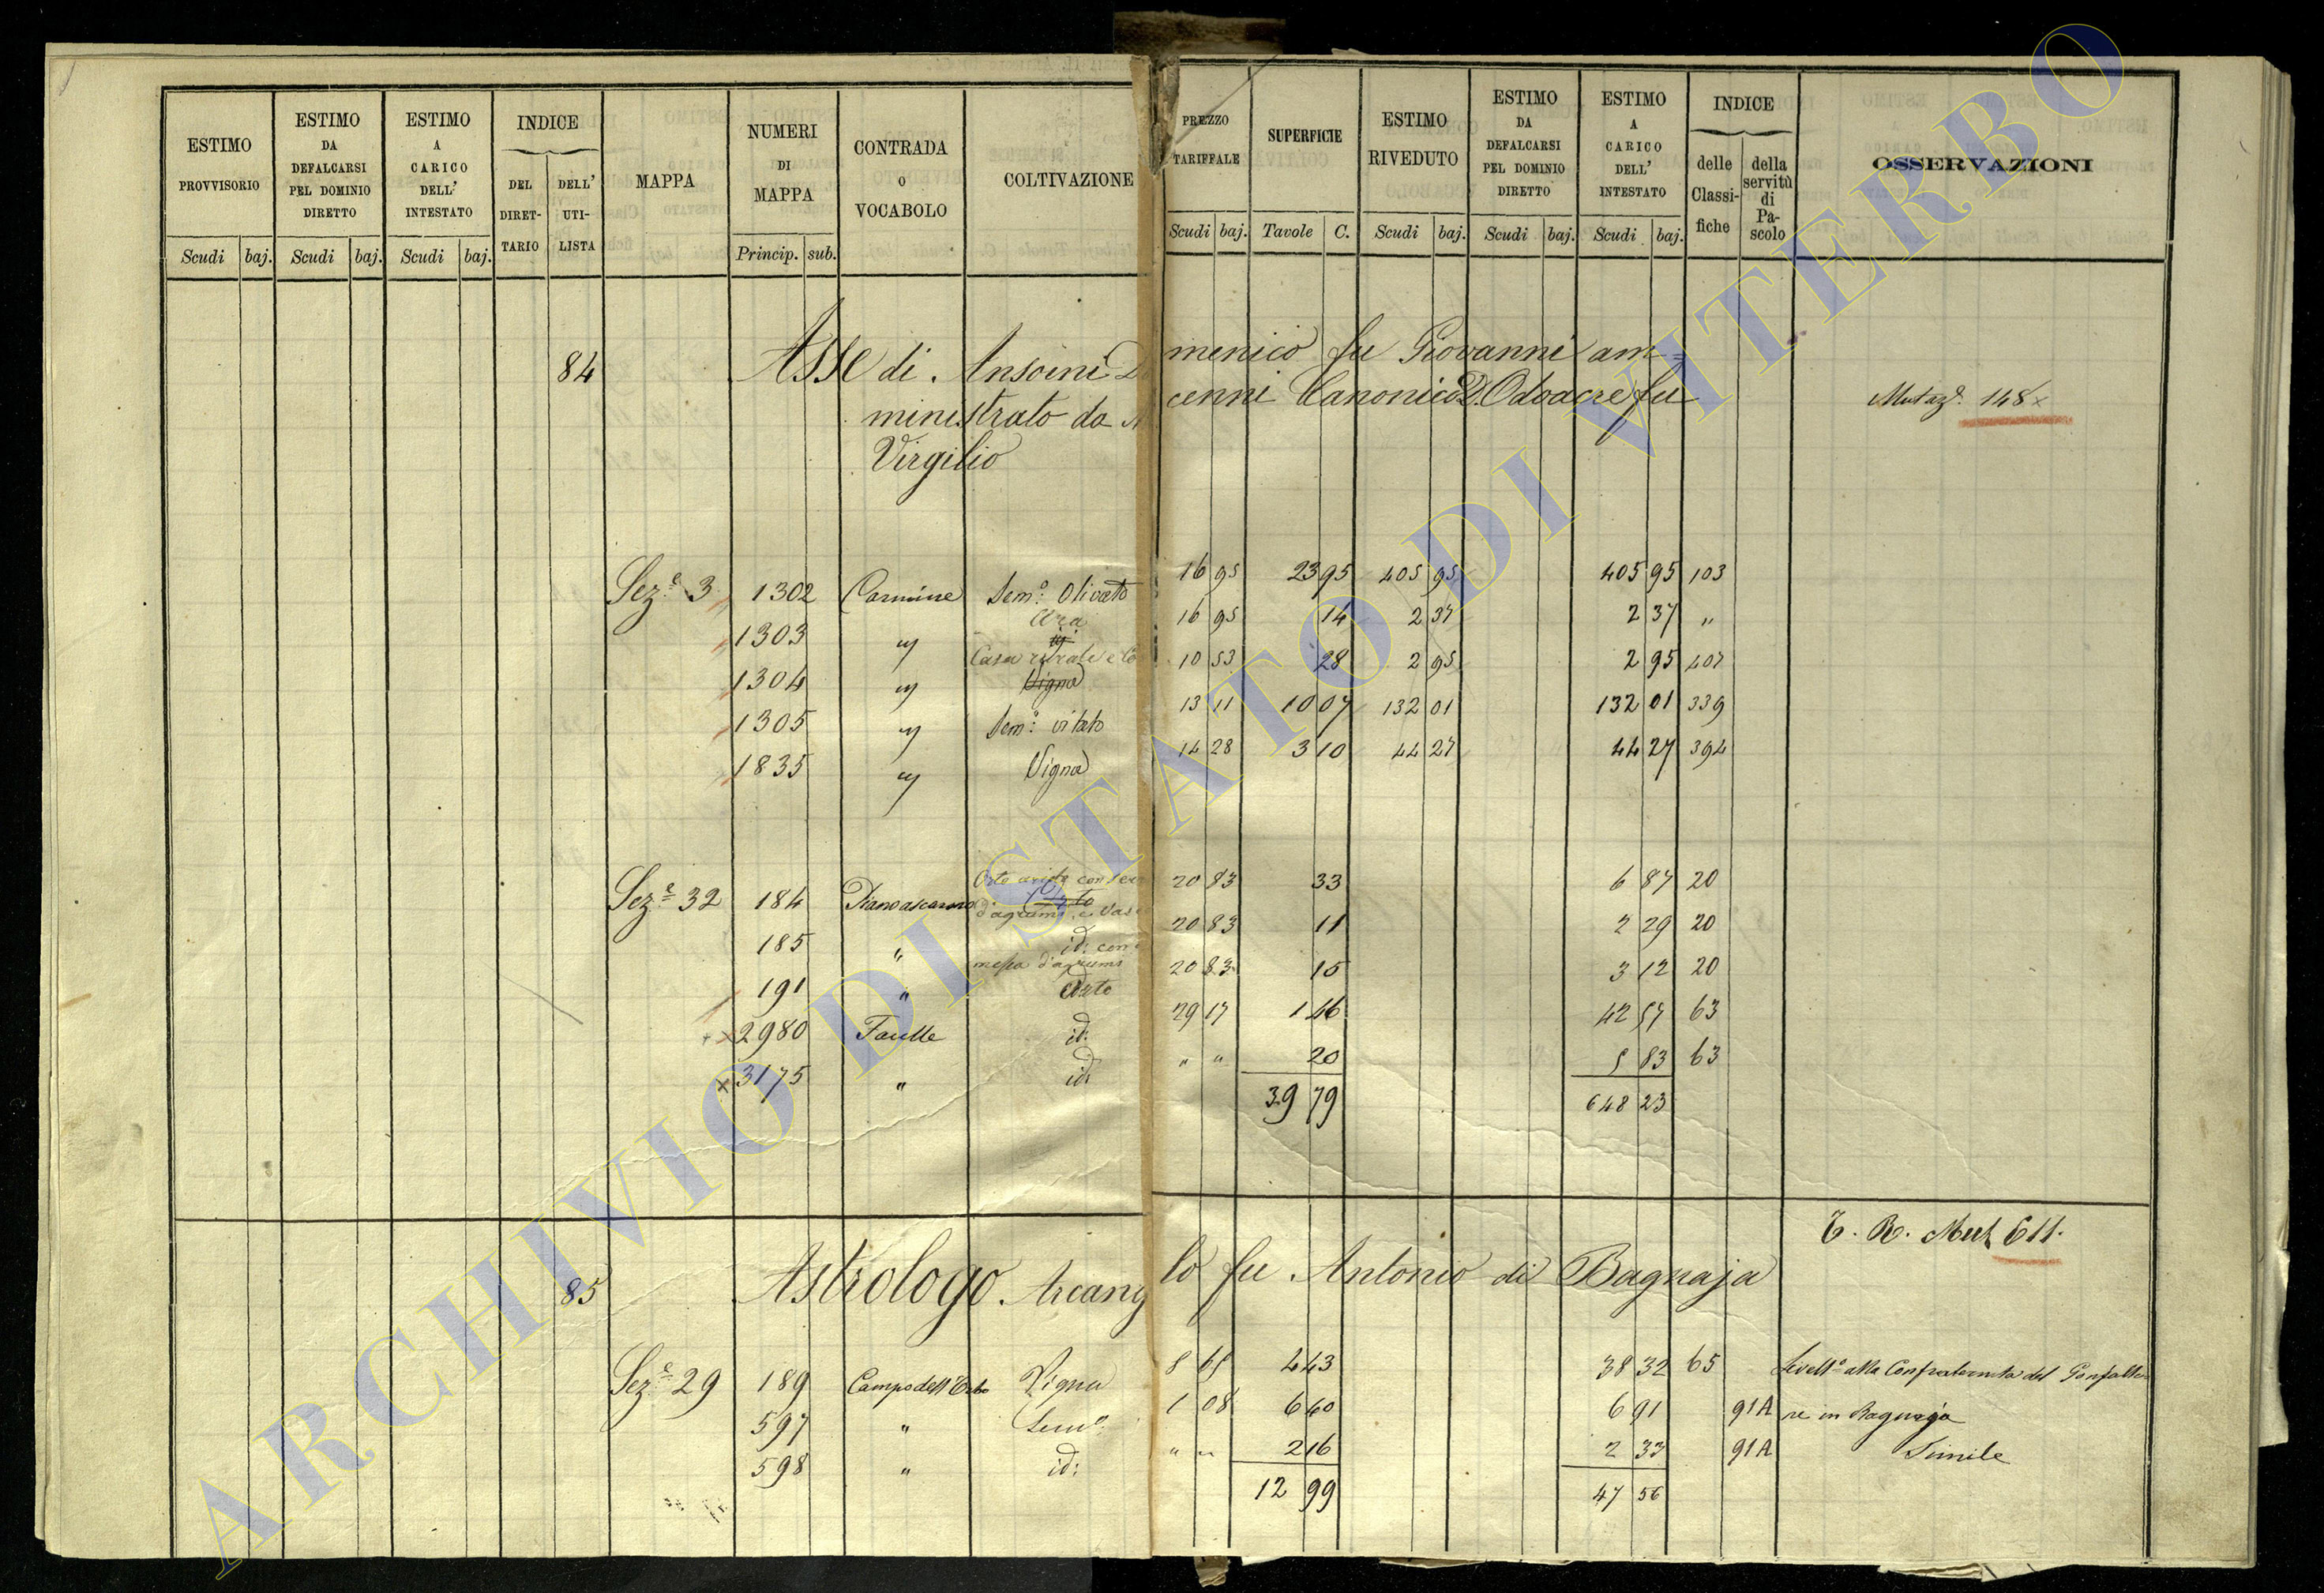 ESTIMO PROVVISORIO
ESTIMO DA DEFALCARSI PEL DOMINIO DIRETTO
ESTIMO A CARICO DELL' INTESTATO
INDICE
DEL DIRET-TARIO
DELL' UTI-LISTA
MAPPA
NUMERI DI MAPPA
CONTRADA O VOCABOLO
COLTIVAZIONE
PREZZO TARIFFALE
SUPERFICIE
ESTIMO RIVEDUTO
ESTIMO DA DEFALCARSI PEL DOMINIO DIRETTO
ESTIMO A CARICO DELL' INTESTATO
INDICE
delle Classi-fiche
della servitù di Pa-scolo
OSSERVAZIONI
Scudi baj. Scudi baj. Scudi baj. Princip. sub. Scudi baj. Tavole C. Scudi baj. Scudi baj. Scudi baj.
84 Asse di Ansoini Domenico fu Giovanni am=
ministrato da cenni Canonico D. Odoacre fu
Virgilio
Mutaz. 148 x
Sez.e 3 1302 Carmine Sem.o Olivato 16 95 23 95 405 95 405 95 103
1303 " Ara 16 95 14 2 37 2 37 "
1304 " Casa rurale e Co Vigna 10 53 28 2 95 2 95 407
1305 " Sem.o vitato 13 11 10 07 132 01 132 01 339
1835 " Vigna 14 28 3 10 44 27 44 27 394
Sez.e 32 184 Pianoascarano Orto d'agrumi e Vasca 20 83 33 6 87 20
185 " id. con 20 83 11 2 29 20
191 " messa d'agrumi Orto 20 83 15 3 12 20
x 2980 Faulle id: 29 17 1 46 42 57 63
x 3175 " id: " " 20 5 83 63
39 79 648 23
T. R. Mut 611.
85 Astrologo Arcangelo fu Antonio di Bagnaja
Sez.e 29 189 Campo dell' Vigna 8 65 4 43 38 32 65 Livell.o alla Confraternita del Gonfalo
597 " Sem.o 1 08 6 40 6 91 91A re in Bagnaja
598 " id: " " 2 16 2 33 91A Simile
12 99 47 56
ARCHIVIO DI STATO DI VITERBO